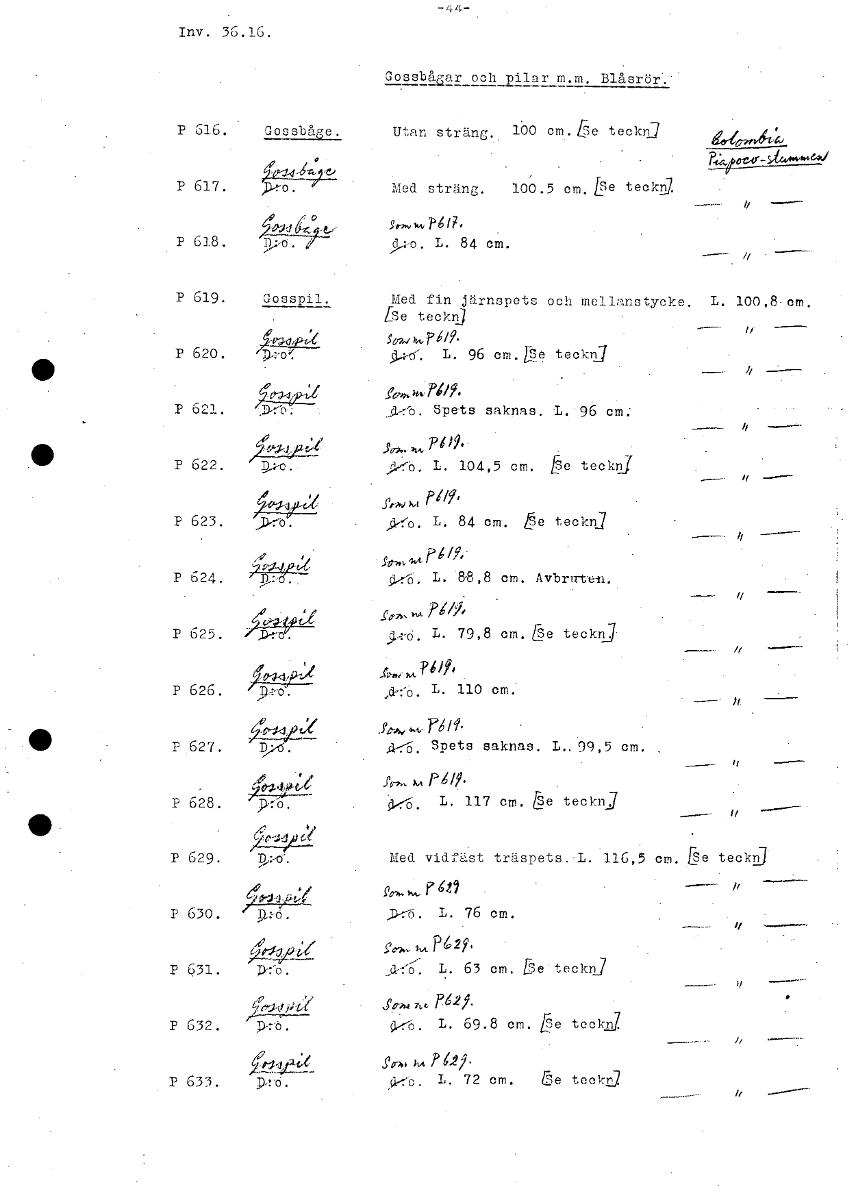 -44-
Inv. 36.16.
Gossbågar och pilar m.m. Blåsrör.
P 616. Gossbåge. Utan sträng. 100 cm. [Se teckn]
Colombia
Piapoco-stammen
Gossbåge
P 617. D:o. Med sträng. 100.5 cm. [Se teckn].
— " —
Gossbåge Som nr P617.
P 618. D:o. d:o. L. 84 cm.
— " —
P 619. Gosspil. Med fin järnspets och mellanstycke. L. 100,8 cm.
[Se teckn]
— " —
Gosspil Som nr P619.
P 620. D:o. d:o. L. 96 cm. [Se teckn]
— " —
Gosspil Som nr P619.
P 621. D:o. d:o. Spets saknas. L. 96 cm.
— " —
Gosspil Som nr P619.
P 622. D:o. d:o. L. 104,5 cm. [Se teckn]
— " —
Gosspil Som nr P619.
P 623. D:o. d:o. L. 84 cm. [Se teckn]
— " —
Gosspil Som nr P619.
P 624. D:o. d:o. L. 88,8 cm. Avbruten.
— " —
Gosspil Som nr P619.
P 625. D:o. d:o. L. 79,8 cm. [Se teckn.]
— " —
Gosspil Som nr P619.
P 626. D:o. d:o. L. 110 cm.
— " —
Gosspil Som nr P619.
P 627. D:o. d:o. Spets saknas. L. 99,5 cm.
— " —
Gosspil Som nr P619.
P 628. D:o. d:o. L. 117 cm. [Se teckn.]
— " —
Gosspil
P 629. D:o. Med vidfäst träspets. L. 116,5 cm. [Se teckn]
— " —
Gosspil Som nr P629
P 630. D:o. D:o. L. 76 cm.
— " —
Gosspil Som nr P629.
P 631. D:o. d:o. L. 63 cm. [Se teckn]
— " —
Gosspil Som nr P629.
P 632. D:o. d:o. L. 69.8 cm. [Se teckn].
— " —
Gosspil Som nr P629.
P 633. D:o. d:o. L. 72 cm. [Se teckn]
— " —